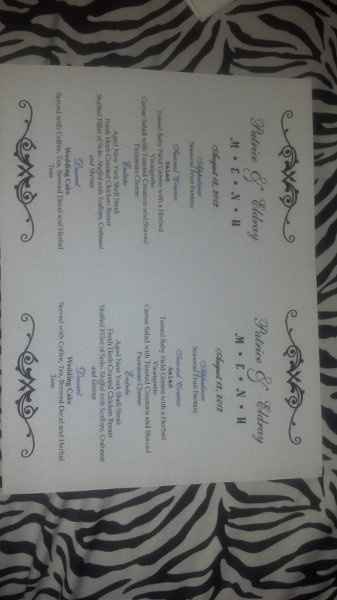 Patrice & Eldray
M • E • N • U
August 18, 2012
Appetizer
Seasonal Fruit Fantasia
Second Course
Salad
Tossed Baby Field Greens with a Herbed
Vinaigrette
Caesar Salad with Toasted Croutons and Shaved
Parmesan Cheese
Entrée
Aged New York Shell Steak
Fresh Herb Crusted Chicken Breast
Stuffed Fillet of Sole, with Scallops, Crabmeat
and Shrimp
Dessert
Wedding Cake
Served with Coffee, Tea, Brewed Decaf and Herbal
Teas
Patrice & Eldray
M • E • N • U
August 18, 2012
Appetizer
Seasonal Fruit Fantasia
Second Course
Salad
Tossed Baby Field Greens with a Herbed
Vinaigrette
Caesar Salad with Toasted Croutons and Shaved
Parmesan Cheese
Entrée
Aged New York Shell Steak
Fresh Herb Crusted Chicken Breast
Stuffed Fillet of Sole, with Scallops, Crabmeat
and Shrimp
Dessert
Wedding Cake
Served with Coffee, Tea, Brewed Decaf and Herbal
Teas